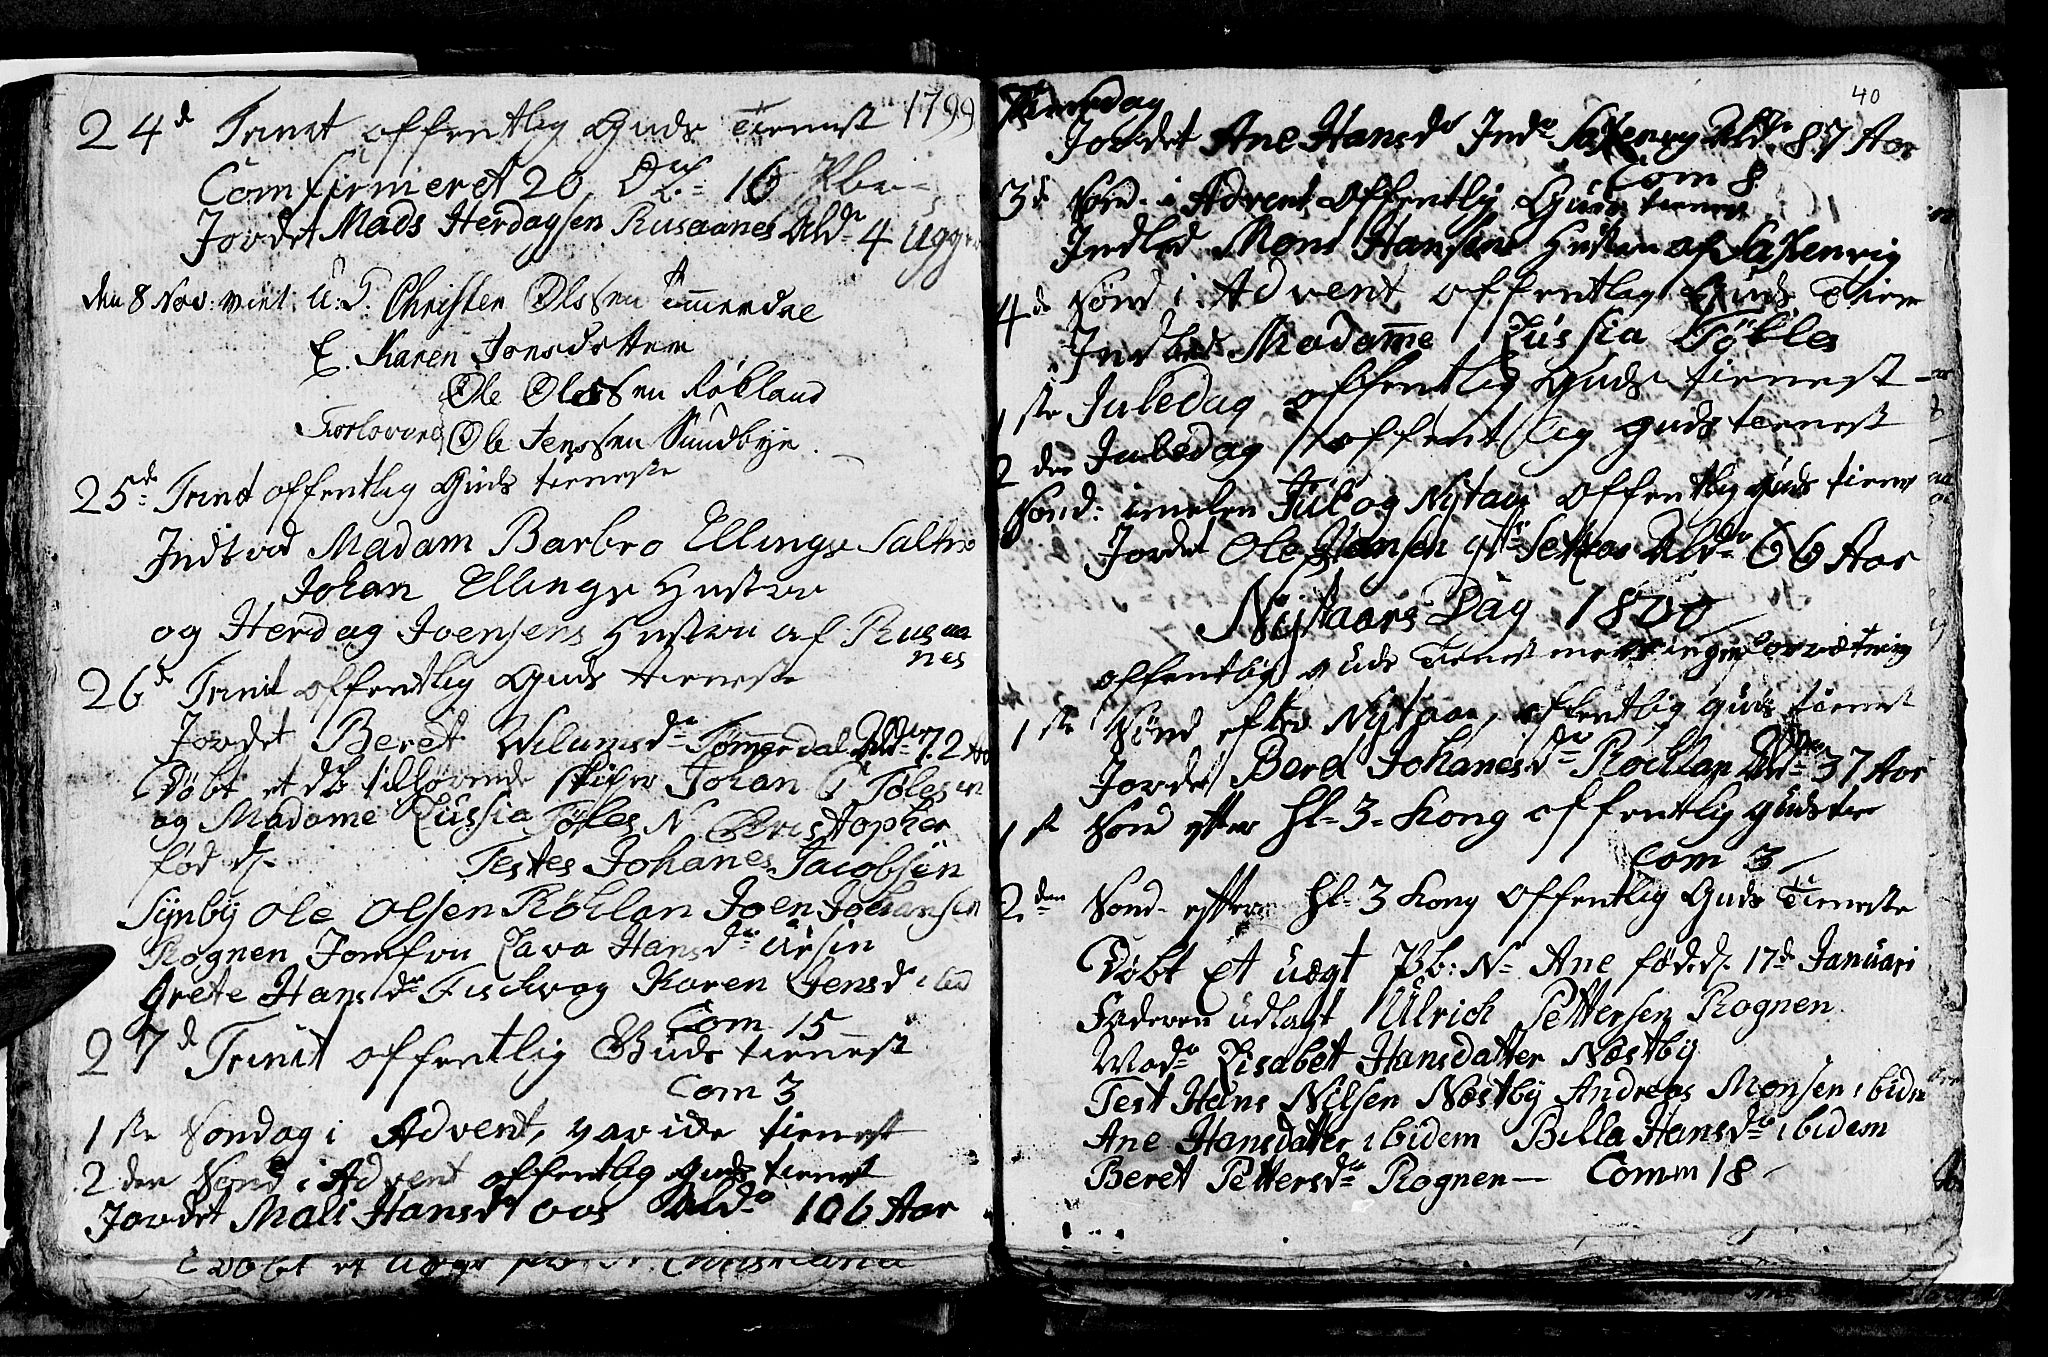 1799
24d Trinit offentlig Guds Tienest
Comfirmeret 20 16
Jordet Mads Herdagsen Rusaanes Ald: 4 Ugger
den 8 Nov: viet U: T. Christen Olssen Tømmerdal
E. Karen Jonsdatter
Ole Olessen Røkland
Forlovere Ole Jenssen Sundbye
25d Trinit offentlig Guds tieneste
Indled Madam Barbro Ellings
Johan Ellings Hustru
og Herdag Joensens Hustru af Rusaa
nes
26d Trinit offentlig Guds tieneste
Jordet Beret Wilumsd: Tømmerdal Ald: 72
Døbt et Johan
og Madame Zussia N Christopher
fød ds. Testes Johanes Jacobsen
Synby Ole Olsen Røklan Joen Johansen
Rognen Jomfru Lava Hansd: Ursin
Grete Hansd: Fischvog Karen Jensd ibid
Com 15
27d Trinit offentlig Guds tienest
Com 3
1ste Søndag i Advent, tienest
2den Sønd i Advent offentlig guds tienest
Jordet Mali Hansd Ald: 106 Aar
Døbt et uægt
40
Jordet Ane Hansd Ind: Saxenvig Ald: 87 Aar
Com 8
3d Sønd. i Advent offentlig Guds tienest
Indled Mons Hansens Hustru af Saxenvig
4de Sønd i Advent offentlig Guds Tien
Indled Madame Zussia
1ste Juledag offentlig Guds tienest
2den Juledag offentlig guds tienest
Sønd: imelen Jul og Nytaar offentlig guds tienes
Jordet Ole Hansen Ald: 66 Aar
Nytaars Dag 1800
offentlig guds Tienest men ingen forrætning
1ste Sønd efter Nytaar, offentlig guds tienest
Jordet Beret Johanesd: Røcklan Ald: 37 Aar
1ste Sønd efter hl- 3- Kong offentlig gudstie
Com 3
2den Sønd- efter hl- 3 Kong offentlig Guds Tieneste
Døbt Et uægt Pb: N- Ane fød ds. 17d Januari
Faderen udlagt Ulrich Pettersen Rognen
Mod: Lisabet Hansdatter Næstby
Test Hans Nilsen Næstby Andreas Monsen ibidm
Ane Hansdatter ibidem Billa Hansd: ibidem
Beret Pettersd: Rognen — Comm 18